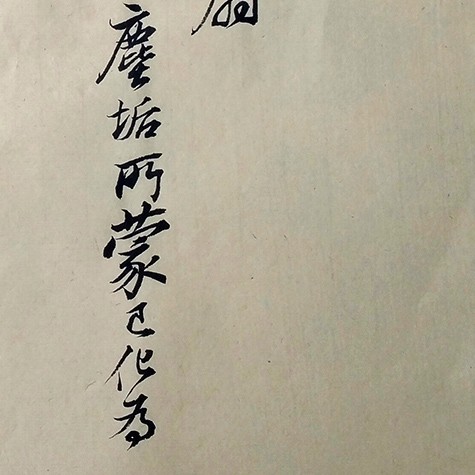 塵垢所蒙已化為